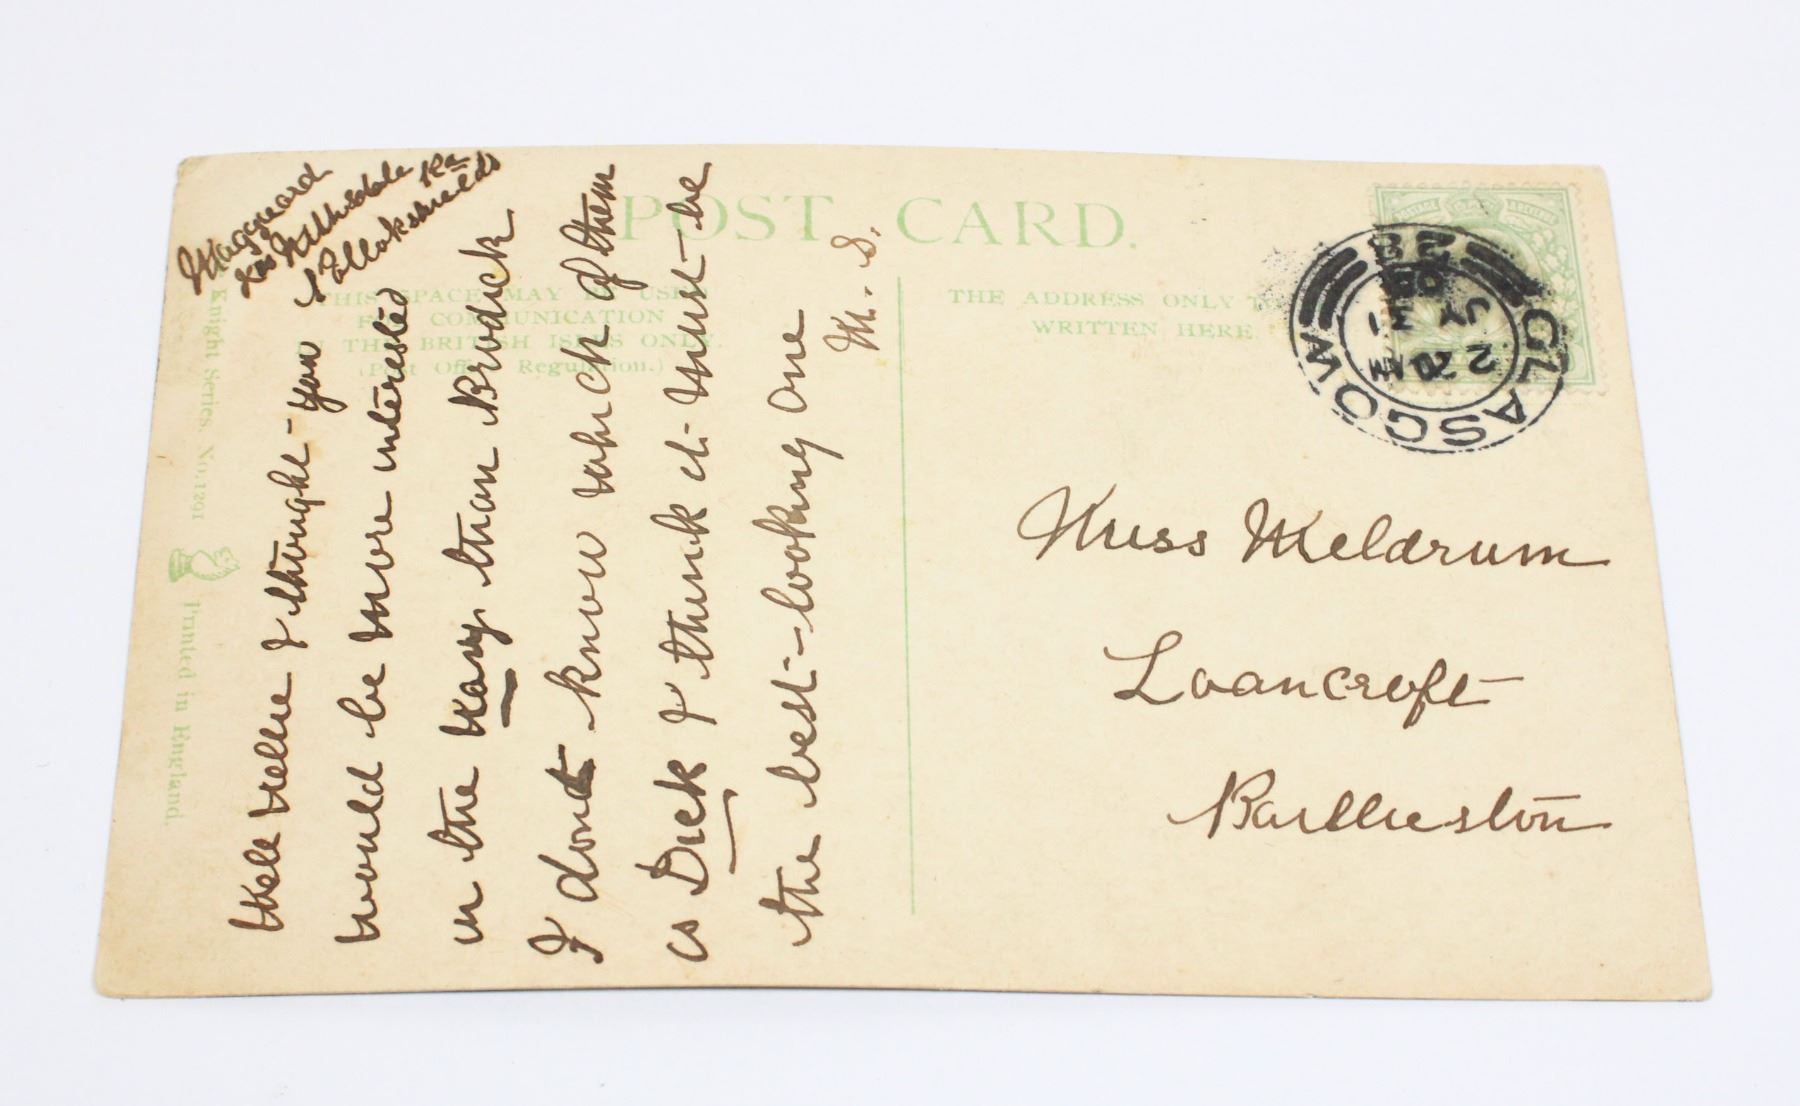 POST CARD.
THIS SPACE MAY BE USED
FOR COMMUNICATION
IN THE BRITISH ISLES ONLY.
(Post Office Regulation.)
THE ADDRESS ONLY TO
WRITTEN HERE.
Knight Series. No. 1291
Printed in England.
GLASGOW
2 20 AM
JY 31
08
28
Haggeard
Nithsdale Rd
Pollokshields
Well Nellie I thought you
would be more interested
in the Navy than Brodick
I dont know which of them
is Dick I think it must be
the best-looking one
M. S.
Miss Meldrum
Loancroft
Baillieston